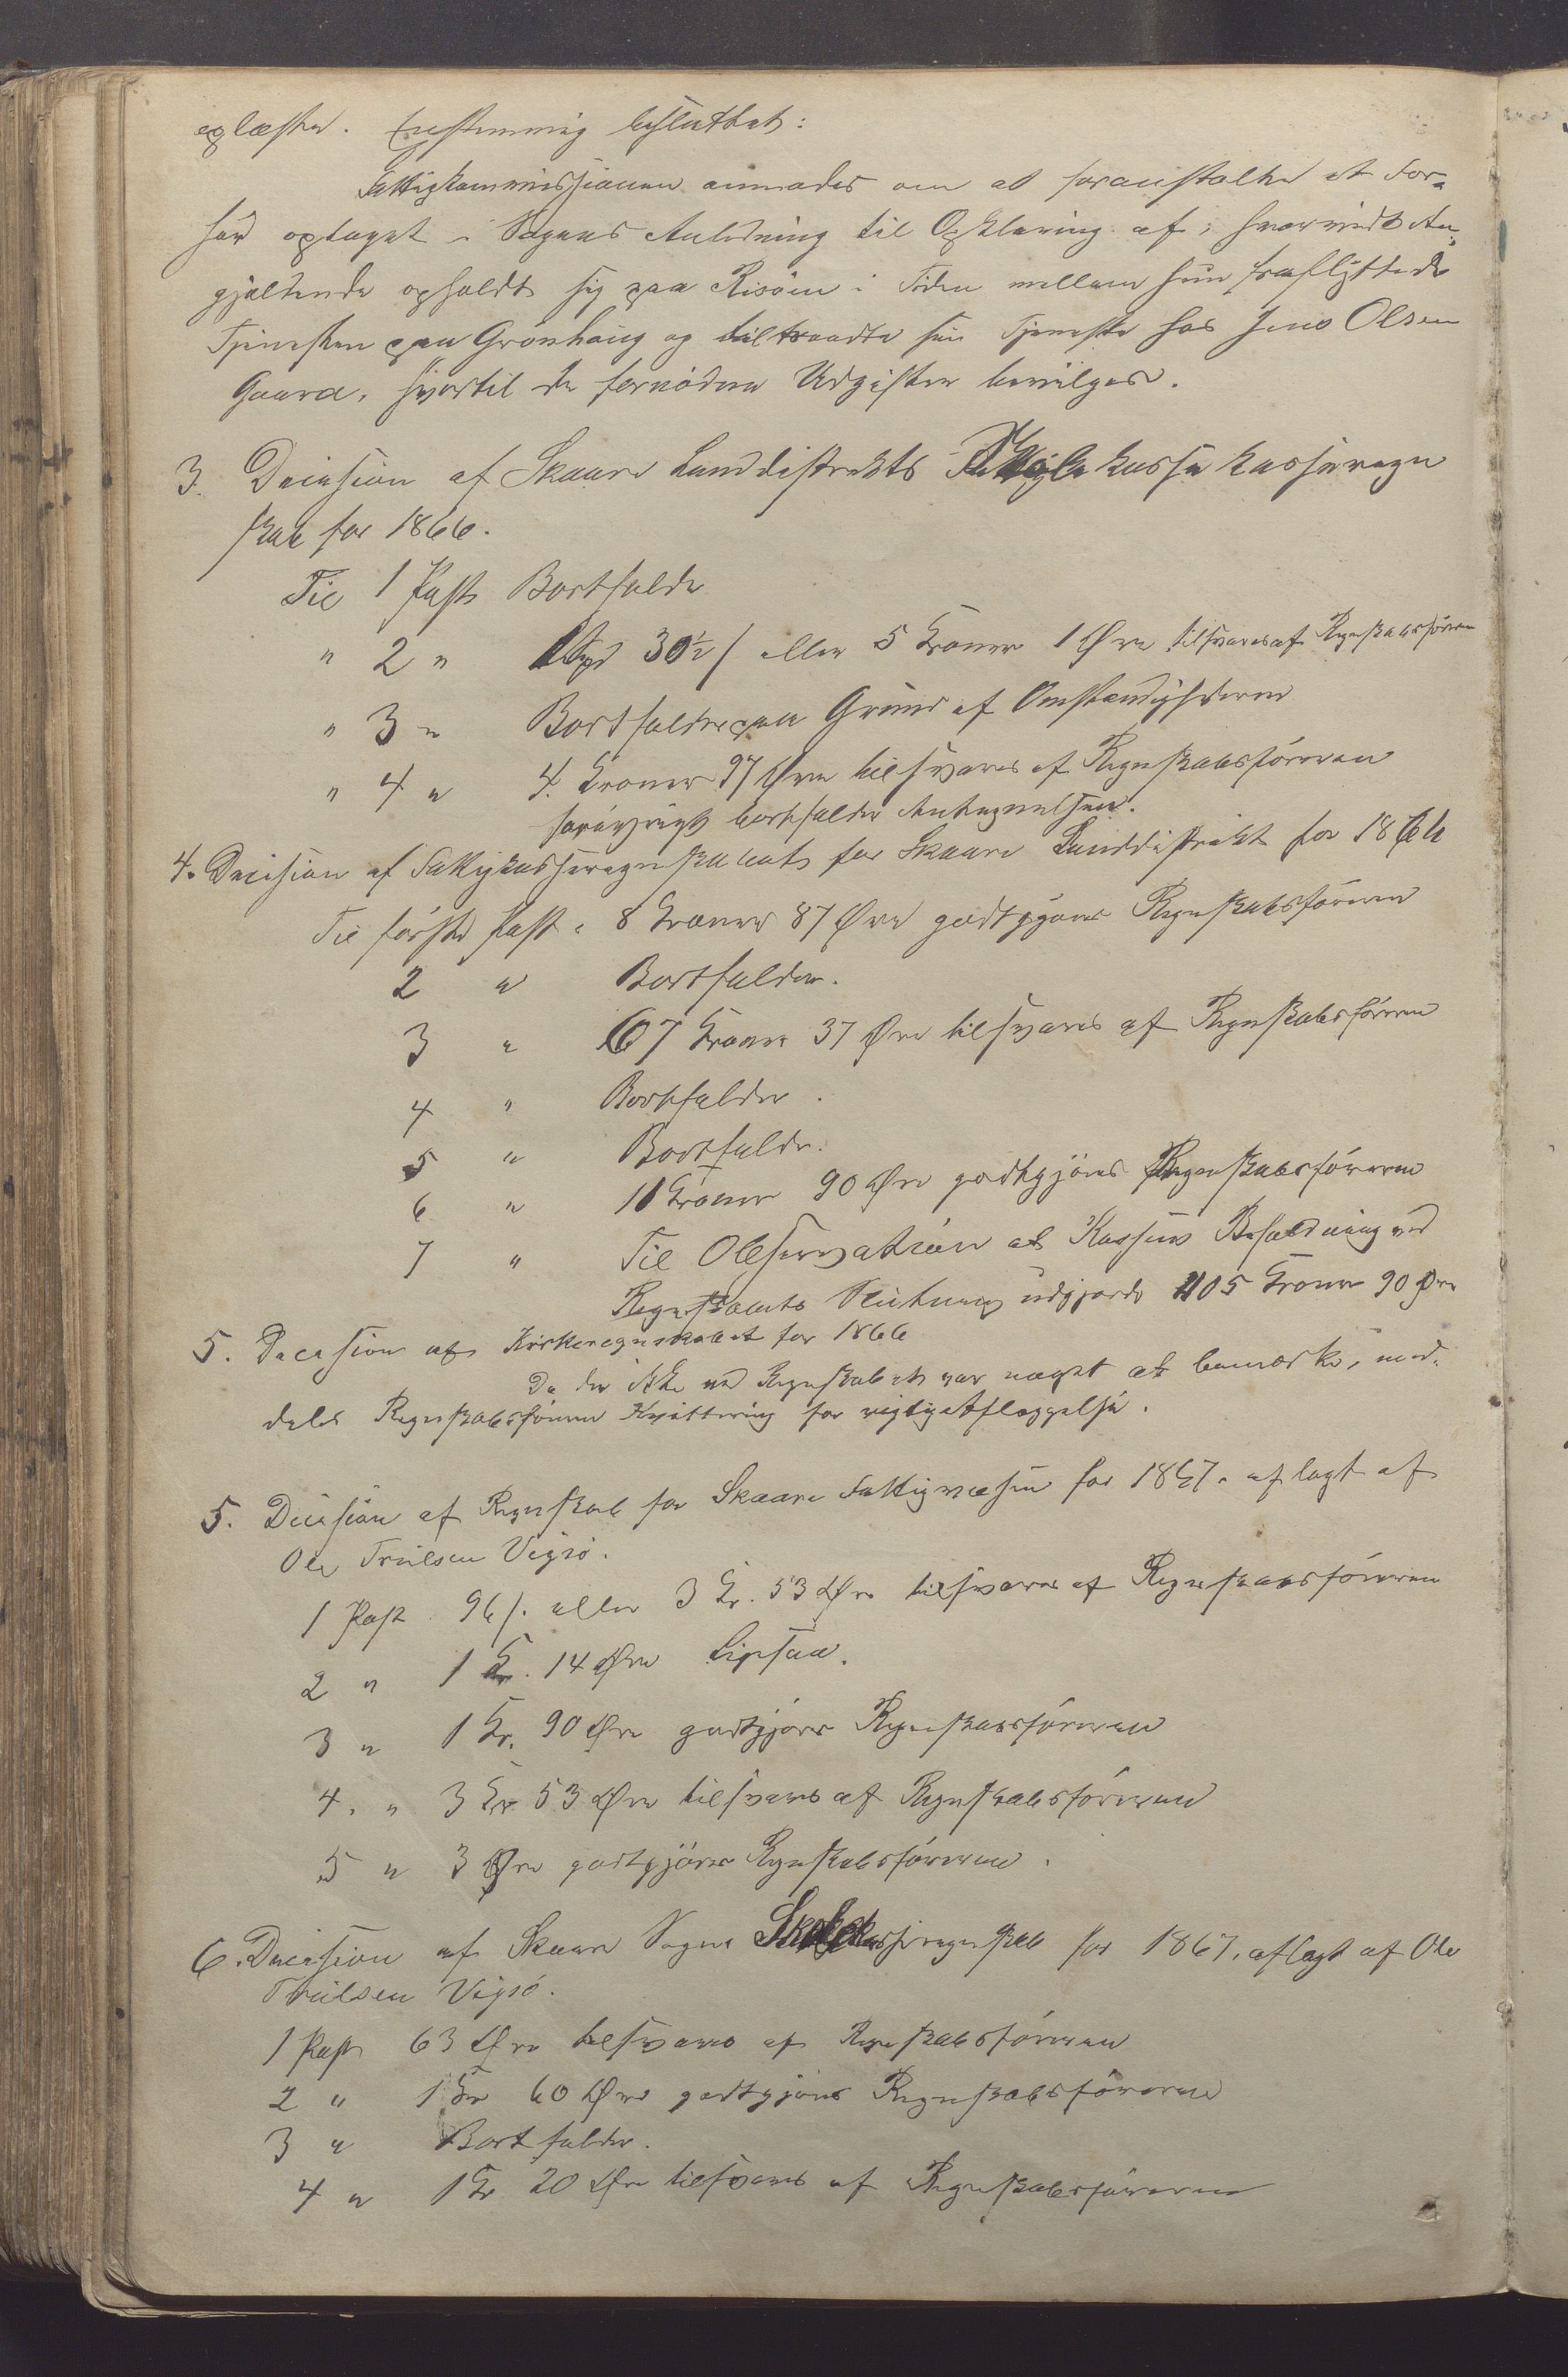 oplæstes. Eenstemmig besluttet:
Fattigkommissionen anmodes om at foranstalte et For-
hør optaget i Sagens Anledning til Opklaring af, hvorvidt An-
gjældende opholdt sig paa Risøen i Tiden mellem hun fraflyttede
Tjenesten paa Grönhaug og tiltraadte sin Tjeneste hos Jens Olsen
Gaard, hvortil de fornödne Udgifter bevilges.
3. Decision af Skaare Landdistrikts Skolekasse kasseregn
skab for 1866.
Til 1 Post Bortfalder
" 2 " 1 Spd 30½ / eller 5 Kroner 1 Øre tilsvares af Regnskabsføreren
" 3 " Bortfalder paa Grund af Omstændighederne
" 4 " 4 Kroner 97 Øre tilsvares af Regnskabsföreren
forövrigt bortfalder Antegnelsen.
4. Decision af Fattigkasseregnskabet for Skaare Landdistrikt for 1866
Til første Post: 8 Kroner 87 Øre godtgjøres Regnskabsföreren
2 " Bortfalder.
3 " 67 Kroner 37 Øre tilsvares af Regnskabsföreren
4 " Bortfalder.
5 " Bortfalder.
6 " 11 Kroner 90 Øre godtgjöres Regnskabsföreren
7 " Til Observation at Kassens Beholdning ved
Regnskabets Slutning udgjorde 105 Kroner 90 Øre
5. Decision af Kirkeregnskabet for 1866
Da der ikke ved Regnskabet var noget at bemærke, med-
deles Regnskabsföreren Kvittering for rigtig Aflæggelse.
5. Decision af Regnskab for Skaare Fattigvæsen for 1867, aflagt af
Ole Trulsen Vigsö.
1 Post 96 /. eller 3 Kr. 53 Øre tilsvares af Regnskabsföreren
2 " 1 Kr. 14 Øre Ligesaa.
3 " 1 Kr. 90 Øre godtgjöres Regnskabsföreren
4. " 3 Kr 53 Øre tilsvares af Regnskabsföreren
5 " 3 Øre godtgjöres Regnskabsföreren.
6. Decision af Skaare Sogns Skolekasseregnskab for 1867, aflagt af Ole
Trulsen Vigsö.
1 Post 63 Øre tilsvares af Regnskabsföreren
2 " 1 Kr 60 Øre godtgjöres Regnskabsföreren
3 " Bortfalder.
4 " 1 Kr 20 Øre tilsvares af Regnskabsföreren